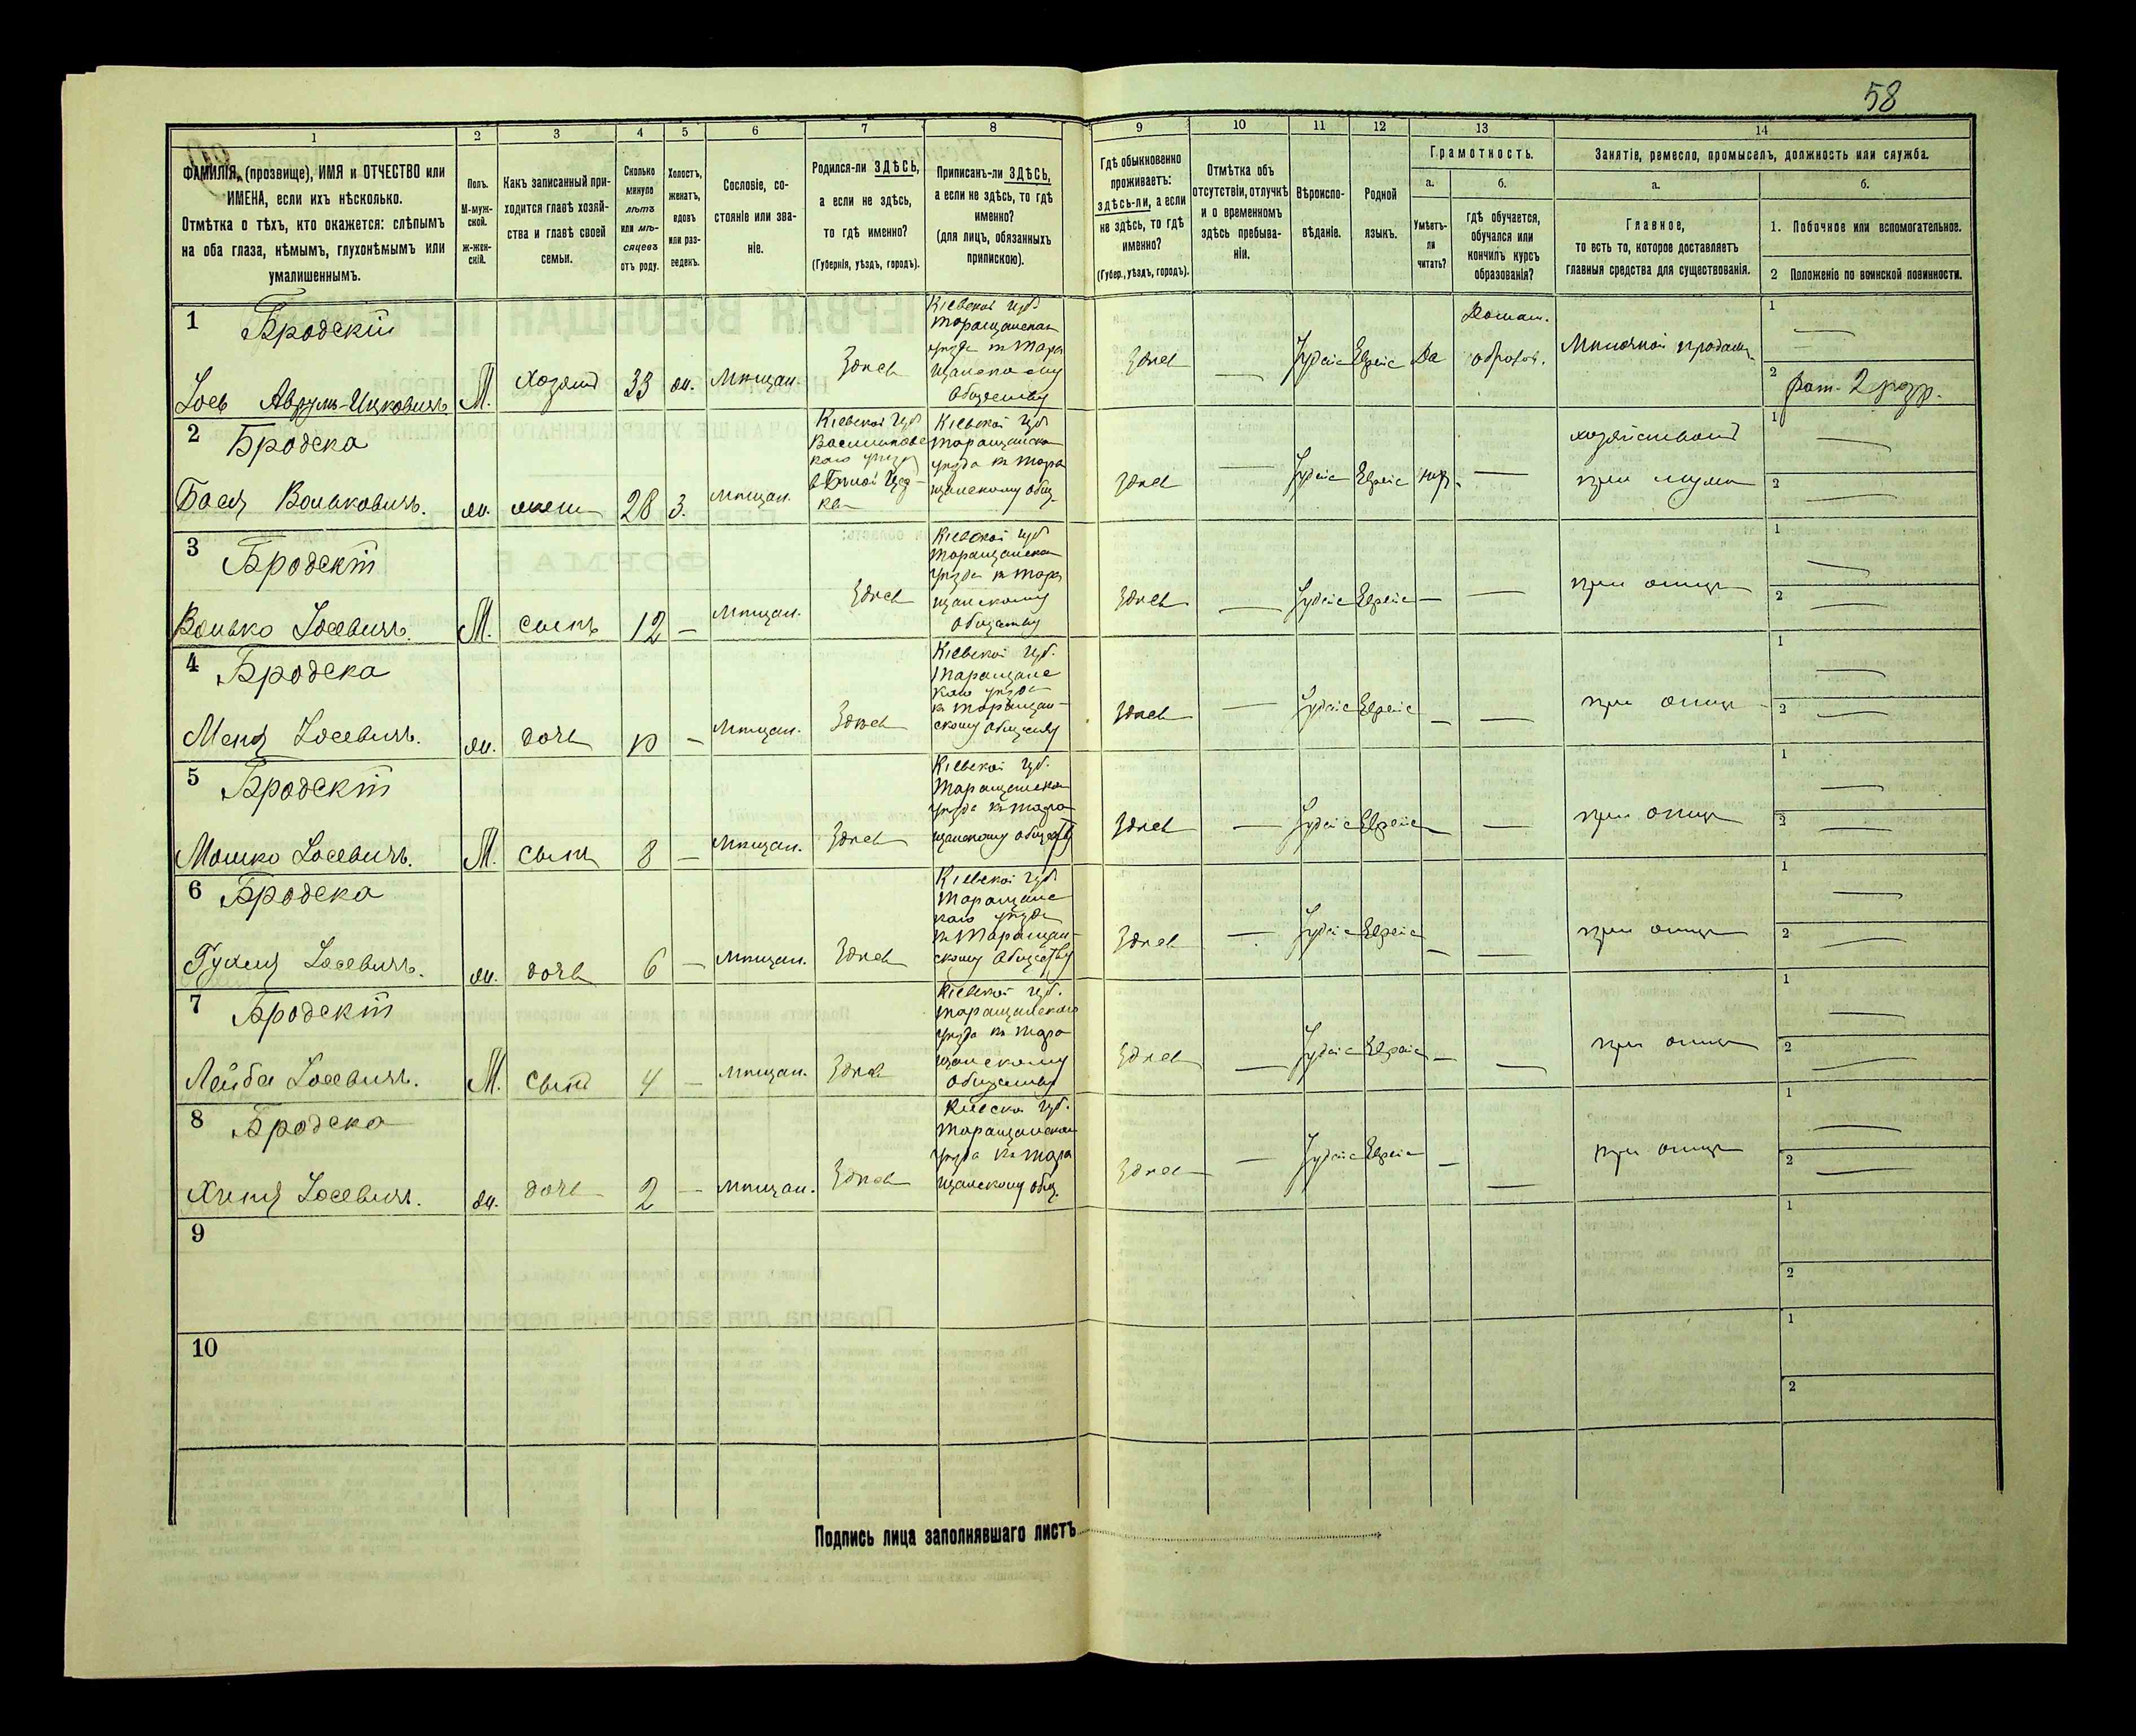 58
1
2
3
4
5
6
7
8
9
10
11
12
13
14
ФАМИЛІЯ, (прозвище), ИМЯ и ОТЧЕСТВО или
ИМЕНА, если ихъ нѣсколько.
Отмѣтка о тѣхъ, кто окажется: слѣпымъ
на оба глаза, нѣмымъ, глухонѣмымъ или
умалишеннымъ.
Полъ.
М-муж-
ской.
ж-жен-
скій.
Какъ записанный при-
ходится главѣ хозяй-
ства и главѣ своей
семьи.
Сколько
минуло
лѣтъ
или мѣ-
сяцевъ
отъ роду.
Холостъ,
женатъ,
вдовъ
или раз-
веденъ.
Сословіе, со-
стояніе или зва-
ніе.
Родился-ли ЗДѢСЬ,
а если не здѣсь,
то гдѣ именно?
(Губернія, уѣздъ, городъ).
Приписанъ-ли ЗДѢСЬ,
а если не здѣсь, то гдѣ
именно?
(для лицъ, обязанныхъ
припискою).
Гдѣ обыкновенно
проживаетъ:
здѣсь-ли, а если
не здѣсь, то гдѣ
именно?
(Губер., уѣздъ, городъ).
Отмѣтка объ
отсутствіи, отлучкѣ
и о временномъ
здѣсь пребыва-
ніи.
Вѣроиспо-
вѣданіе.
Родной
языкъ.
Грамотность.
а.
Умѣетъ-
ли
читать?
б.
гдѣ обучается,
обучался или
кончилъ курсъ
образованія?
Занятіе, ремесло, промыселъ, должность или служба.
а.
Главное,
то есть то, которое доставляетъ
главныя средства для существованія.
б.
1. Побочное или вспомогательное.
2 Положеніе по воинской повинности.
1 Бродскій
Іось Аврумъ-Ицковичъ М. хозяинъ 33 ж. мѣщан. Здѣсь
Кіевской губ.
Таращанскаго
уѣзда къ Тара
щанскому
обществу
Здѣсь — Іудейс Еврейс Да
Домаш.
образов.
Мелочной продав.
1 —
2 рат. 2 разр.
2 Бродска
Бася Вольковичъ. ж. жена 28 З. мѣщан.
Кіевской губ
Васильковс
каго уѣзда
в Бѣлой Цер-
кви
Кіевской губ
Таращанска
уѣзда къ Тара
щанскому общ.
Здѣсь — Іудейс Еврейс нѣт. —
хозяйством
при мужѣ
1 —
2 —
3 Бродскій
Волько Іосевичъ. М. сынъ 12 — мѣщан. Здѣсь
Кіевской губ
Таращанска
уѣзда къ Тара
щанскому
обществу
Здѣсь — Іудейс Еврейс — — при отцѣ
1 —
2 —
4 Бродска
Меня Іосевичъ. ж. дочь 10 — мѣщан. Здѣсь
Кіевской губ.
Таращанс
каго уѣзда
къ Таращан-
скому обществу
Здѣсь — Іудейс Еврейс — — при отцѣ
1 —
2 —
5 Бродскій
Мошко Іосевичъ. М. сынъ 8 — мѣщан. Здѣсь
Кіевской губ.
Таращанска
уѣзда къ Тара
щанскому обществу
Здѣсь — Іудейс Еврейс — — при отцѣ
1 —
2 —
6 Бродска
Іосевичъ. ж. дочь 6 — мѣщан. Здѣсь
Кіевской губ.
Таращанс
каго уѣзда
къ Таращан-
скому обществу
Здѣсь — Іудейс Еврейс — — при отцѣ
1 —
2 —
7 Бродскій
Лейба Іосевичъ. М. сынъ 4 — мѣщан. Здѣсь
Кіевской губ.
Таращанскаго
уѣзда къ Тара
щанскому
обществу
Здѣсь — Іудейс Еврейс — — при отцѣ
1 —
2 —
8 Бродска
Хиня Іосевичъ. ж. дочь 2 — мѣщан. Здѣсь
Кіевско губ.
Таращанска
уѣзда къ Тара
щанскому общ.
Здѣсь — Іудейс Еврейс — — при отцѣ
1 —
2 —
9
1
2
10
1
2
Подпись лица заполнявшаго листъ